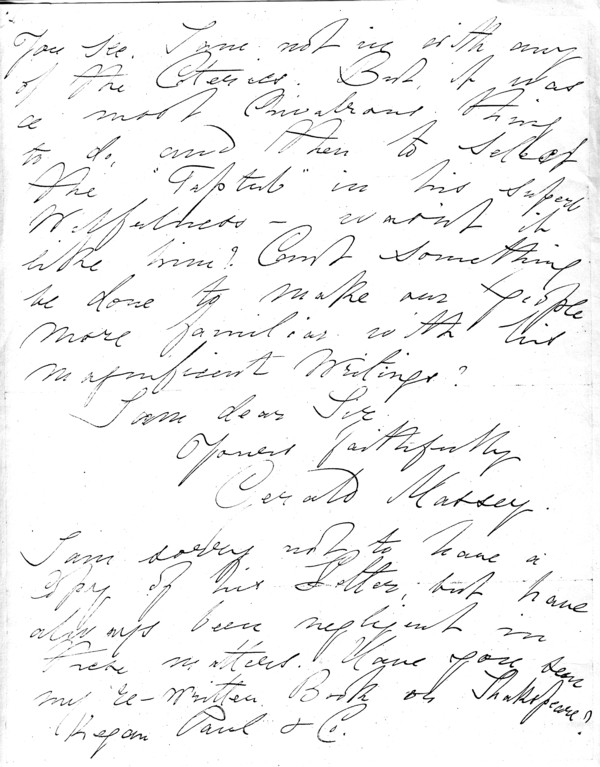 You see, I am not in with any
of the Coteries. But, it was
a most Chivalrous thing
to do, and then to select
the in his superb
Wilfulness — wasn't it
like him? Can't something
be done to make our people
more familiar with his
magnificent Writings?
I am dear Sir
Yours faithfully
Gerald Massey.
I am sorry not to have a
Copy of his Letter, but have
always been negligent in
these matters. Have you seen
my re-written Book on Shakspeare?
Kegan Paul & Co.